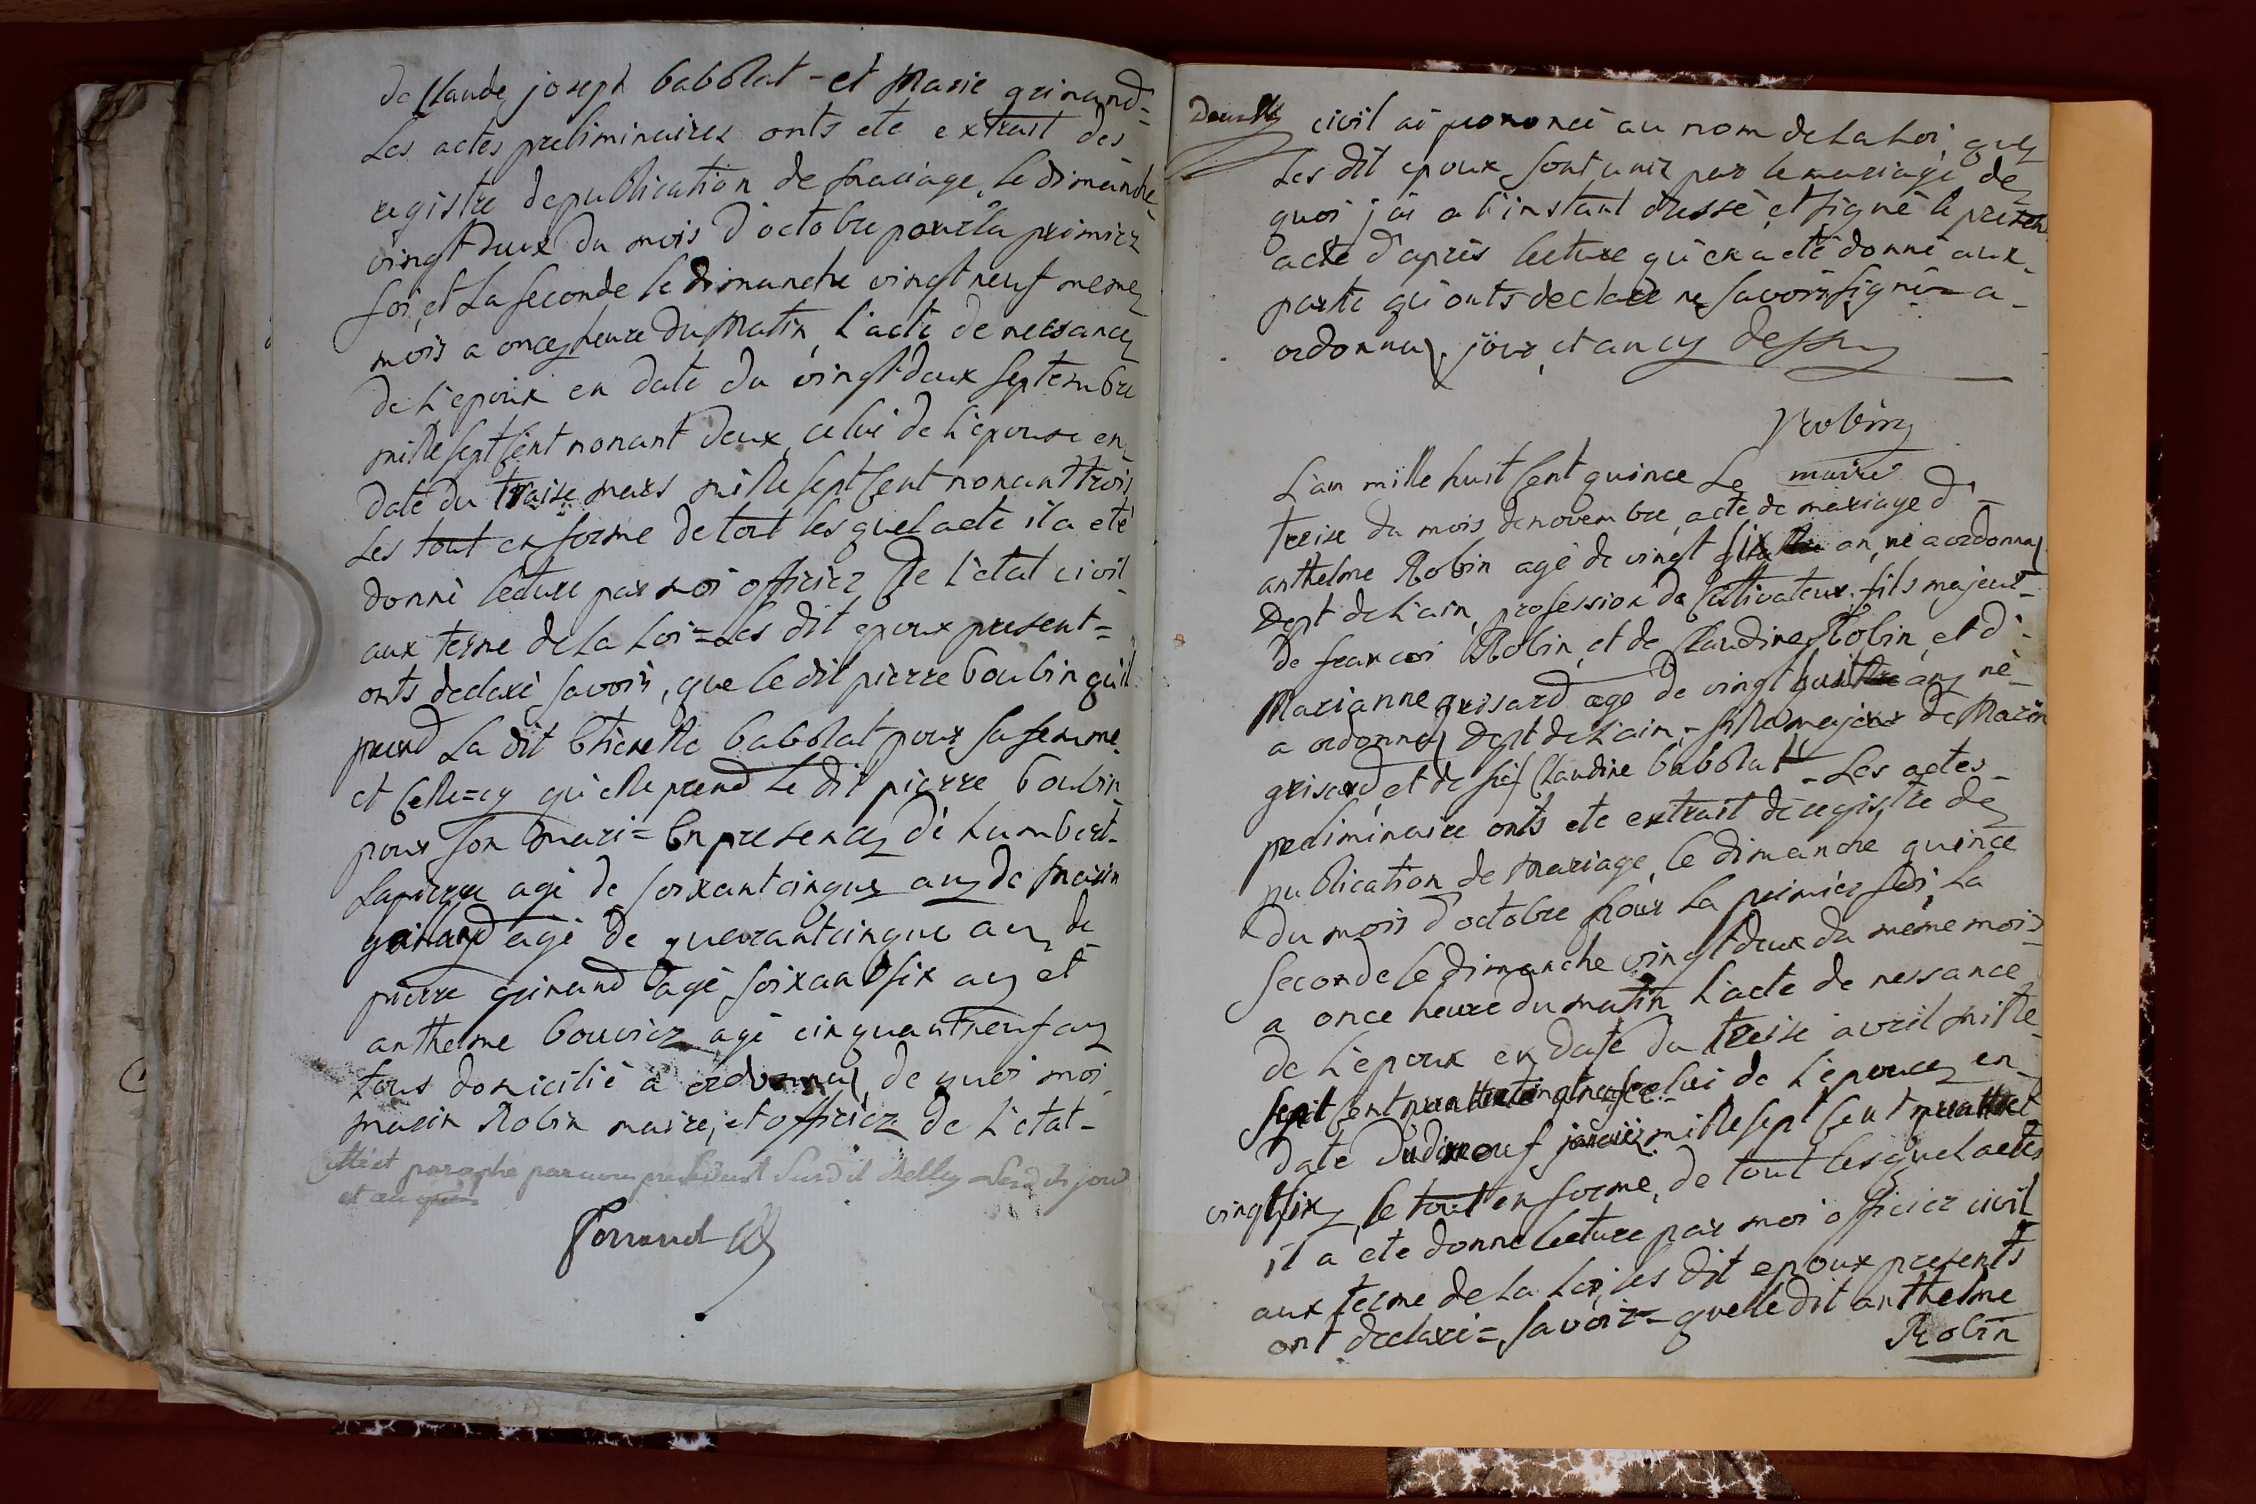 de Claude joseph babolat - et Marie guinand =
Les actes preliminaires onts ete extrait des
registre de publication de Mariage, le dimanche
vingt deux du mois d'octobre pour la premiez
foi, et La seconde le dimanche vingt neuf meme
mois a once heure du Matin, L'acte de nessance
de L'epoux en date du vingt deux septembre
mille sept sent nonant deux, celui de l'epouse en
date du traise mars mille sept sent nonant trois
Les tout en forme de tout les quel acte il a eté
donné lecture par moi officiez de l'etat civil
aux terme de la Loi = Les dit epoux present =
onts declaré savoir, que le dit pierre boubin qu'il
prend La dit babolat pour sa femme
et Celle=cy qu'elle prend Le dit pierre boubin
pour son mari = En presence de humbert
Lapierre agé de soixant cinque an, de Marin
guinand agé de quarant cinque an, de
pierre guinand agé soixant six an et
anthelme bouviez agé cinquant neuf an
tous domicilié a ordonna, de quoi moi
marin Robin maire, et officiez de L'etat -
Cotté et paraphé par nous president dud jour
et an
ferrand
Deux civil ai prononcé au nom de La Loi que
Les dit epoux sont unis par le mariage de
quoi j'ai a l'instant dressé, et signé le present
acte d'après lecture qu'en a eté donné aux
partie qui onts declaré ne savoir signé = a -
ordonna, jour, et an cy dessu
Robin
maire
L'an mille huit sent quince Le
treise du mois de novembre, acte de mariage d'
anthelme Robin agé de vingt six an, né a ordonna
Dept de L'ain, profession de Cultivateur. fils majeur
de francoi Robin, et de Claudine Robin, et d'
Marianne grisard age de vingt huit an, né
a ordonna Dept de L'ain, - fille majeur de Marin
grisard, et de Claudine babolat - Les actes -
preliminaire onts ete extrait de registre de
publication de Mariage, le dimanche quince
du mois d'octobre pour La premiez foi, La
Seconde le dimanche vingt deux du meme mois
a once heure du matin L'acte de nessance
de L'epoux en date du treise avril mille
sept sent quatre vingt neuf celui de L'epouce en
date du dixneuf janvié mille sept sent quattre
vingt six, le tout en forme, de tout les quel actes
il a ete donne lecture par moi officiez civil
aux terme de la Loi, les dit epoux presents
ont declaré = savoir = que le dit anthelme
Robin